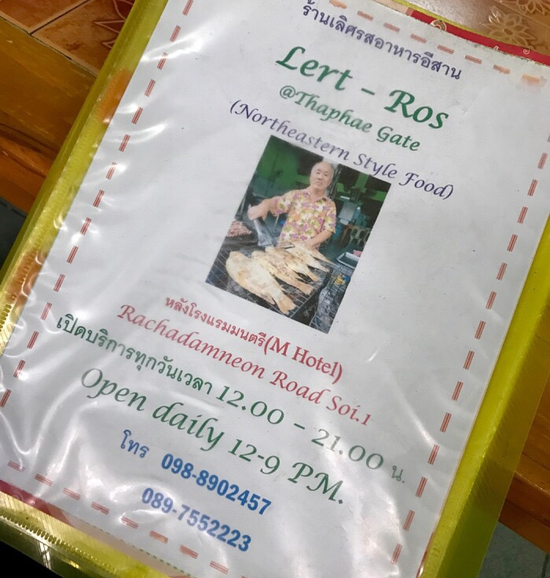 ร้านเลิศรสอาหารอีสาน
Lert - Ros
@Thaphae Gate
(Northeastern Style Food)
หลังโรงแรมมนตรี(M Hotel)
Rachadamneon Road Soi.1
เปิดบริการทุกวันเวลา 12.00 - 21.00 น.
Open daily 12-9 PM.
โทร 098-8902457
089-7552223